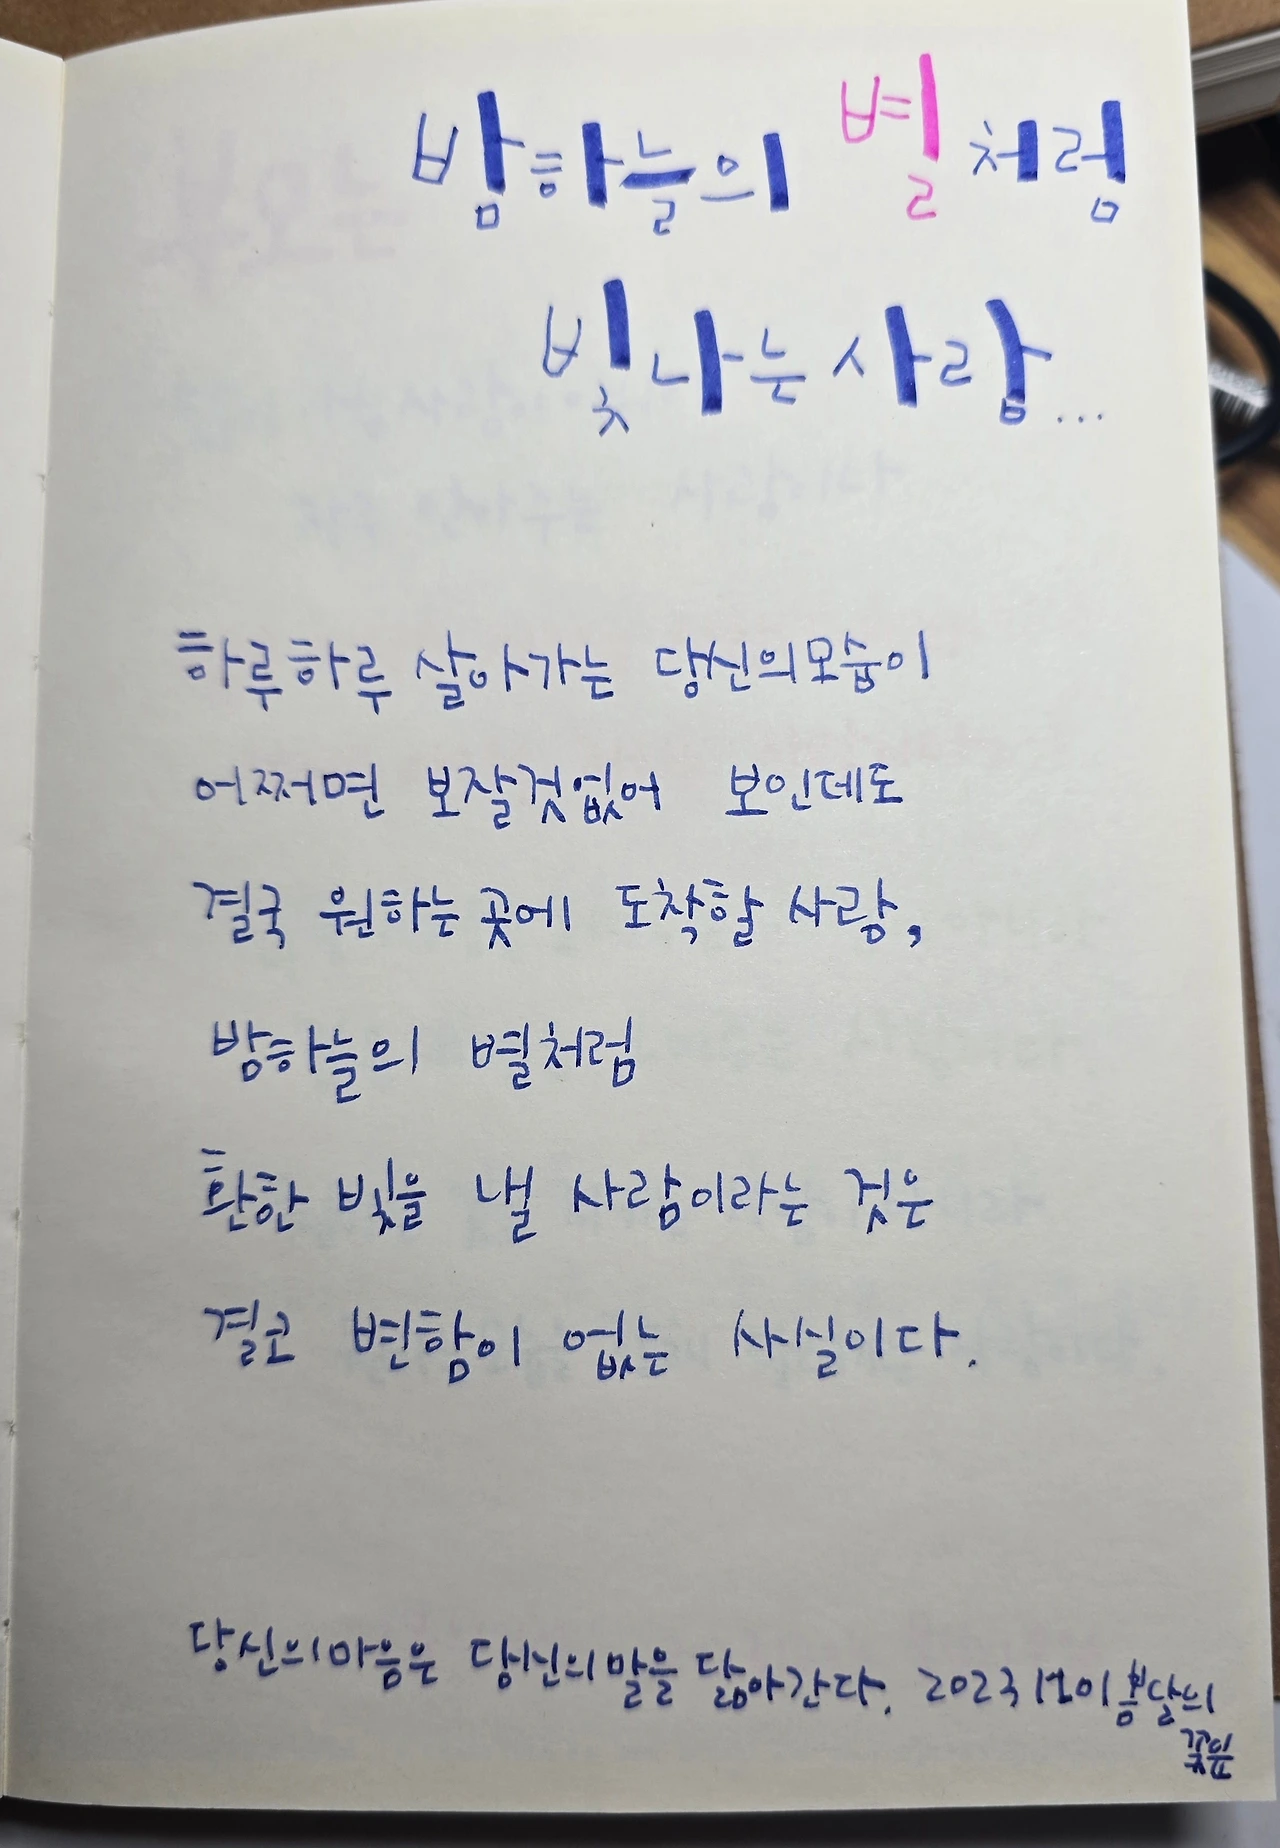 밤하늘의 별처럼
빛나는 사람...
하루하루 살아가는 당신의모습이
어쩌면 보잘것없어 보인데도
결국 원하는 곳에 도착할 사람,
밤하늘의 별처럼
환한 빛을 낼 사람이라는 것은
결코 변함이 없는 사실이다.
당신의마음은 당신의말을 닮아간다. 2023